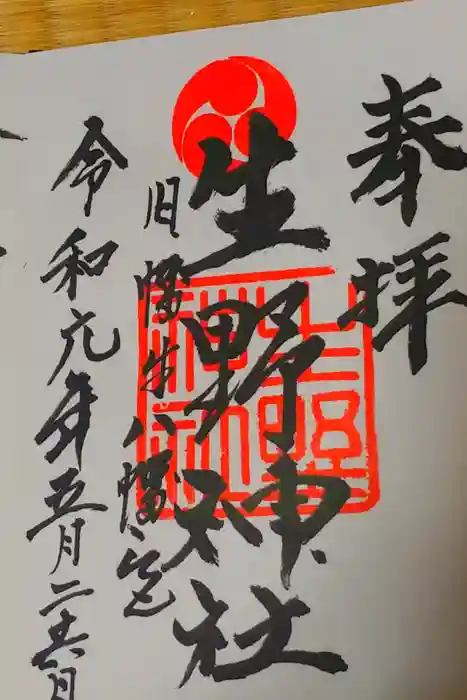 奉拝
生野神社
旧幡生八幡宮
令和元年五月二十六日